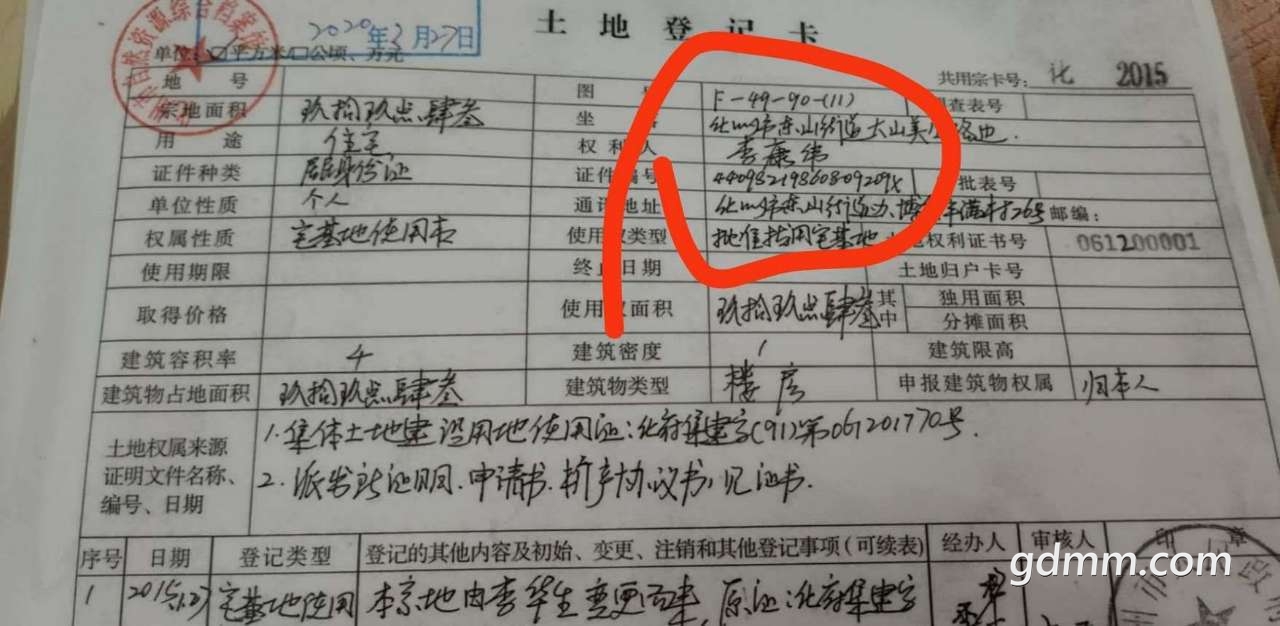 土地登记卡
2020年3月27日
单位：☑平方米/□公顷、万元
共用宗卡号： 2015
地 号 图 号 F-49-90-(11) 调查表号
宗地面积 玖拾玖点肆叁 坐 化州市东山街道大山美
用 途 住宅 权利人 李康纬
证件种类 居民身份证 证件编号 批表号
单位性质 个人 通讯地址 化州市东山街道办 26号 邮编：
权属性质 宅基地使用 使用权类型 批准拨用宅基地 土地权利证书号 061200001
使用期限 终止日期 土地归户卡号
取得价格 使用权面积 玖拾玖点肆叁 其中 独用面积
分摊面积
建筑容积率 4 建筑密度 1 建筑限高
建筑物占地面积 玖拾玖点肆叁 建筑物类型 楼房 申报建筑物权属 归本人
土地权属来源证明文件名称、编号、日期
1.集体土地建设用地使用证：化府集建字(91)第061201770号.
2. 证明.申请书.析产协议书,见证书.
序号 日期 登记类型 登记的其他内容及初始、变更、注销和其他登记事项（可续表） 经办人 审核人 印 章
1 2015 宅基地使用 本宗地由李华生变更而来,原证:化府集建字
gdmm.com